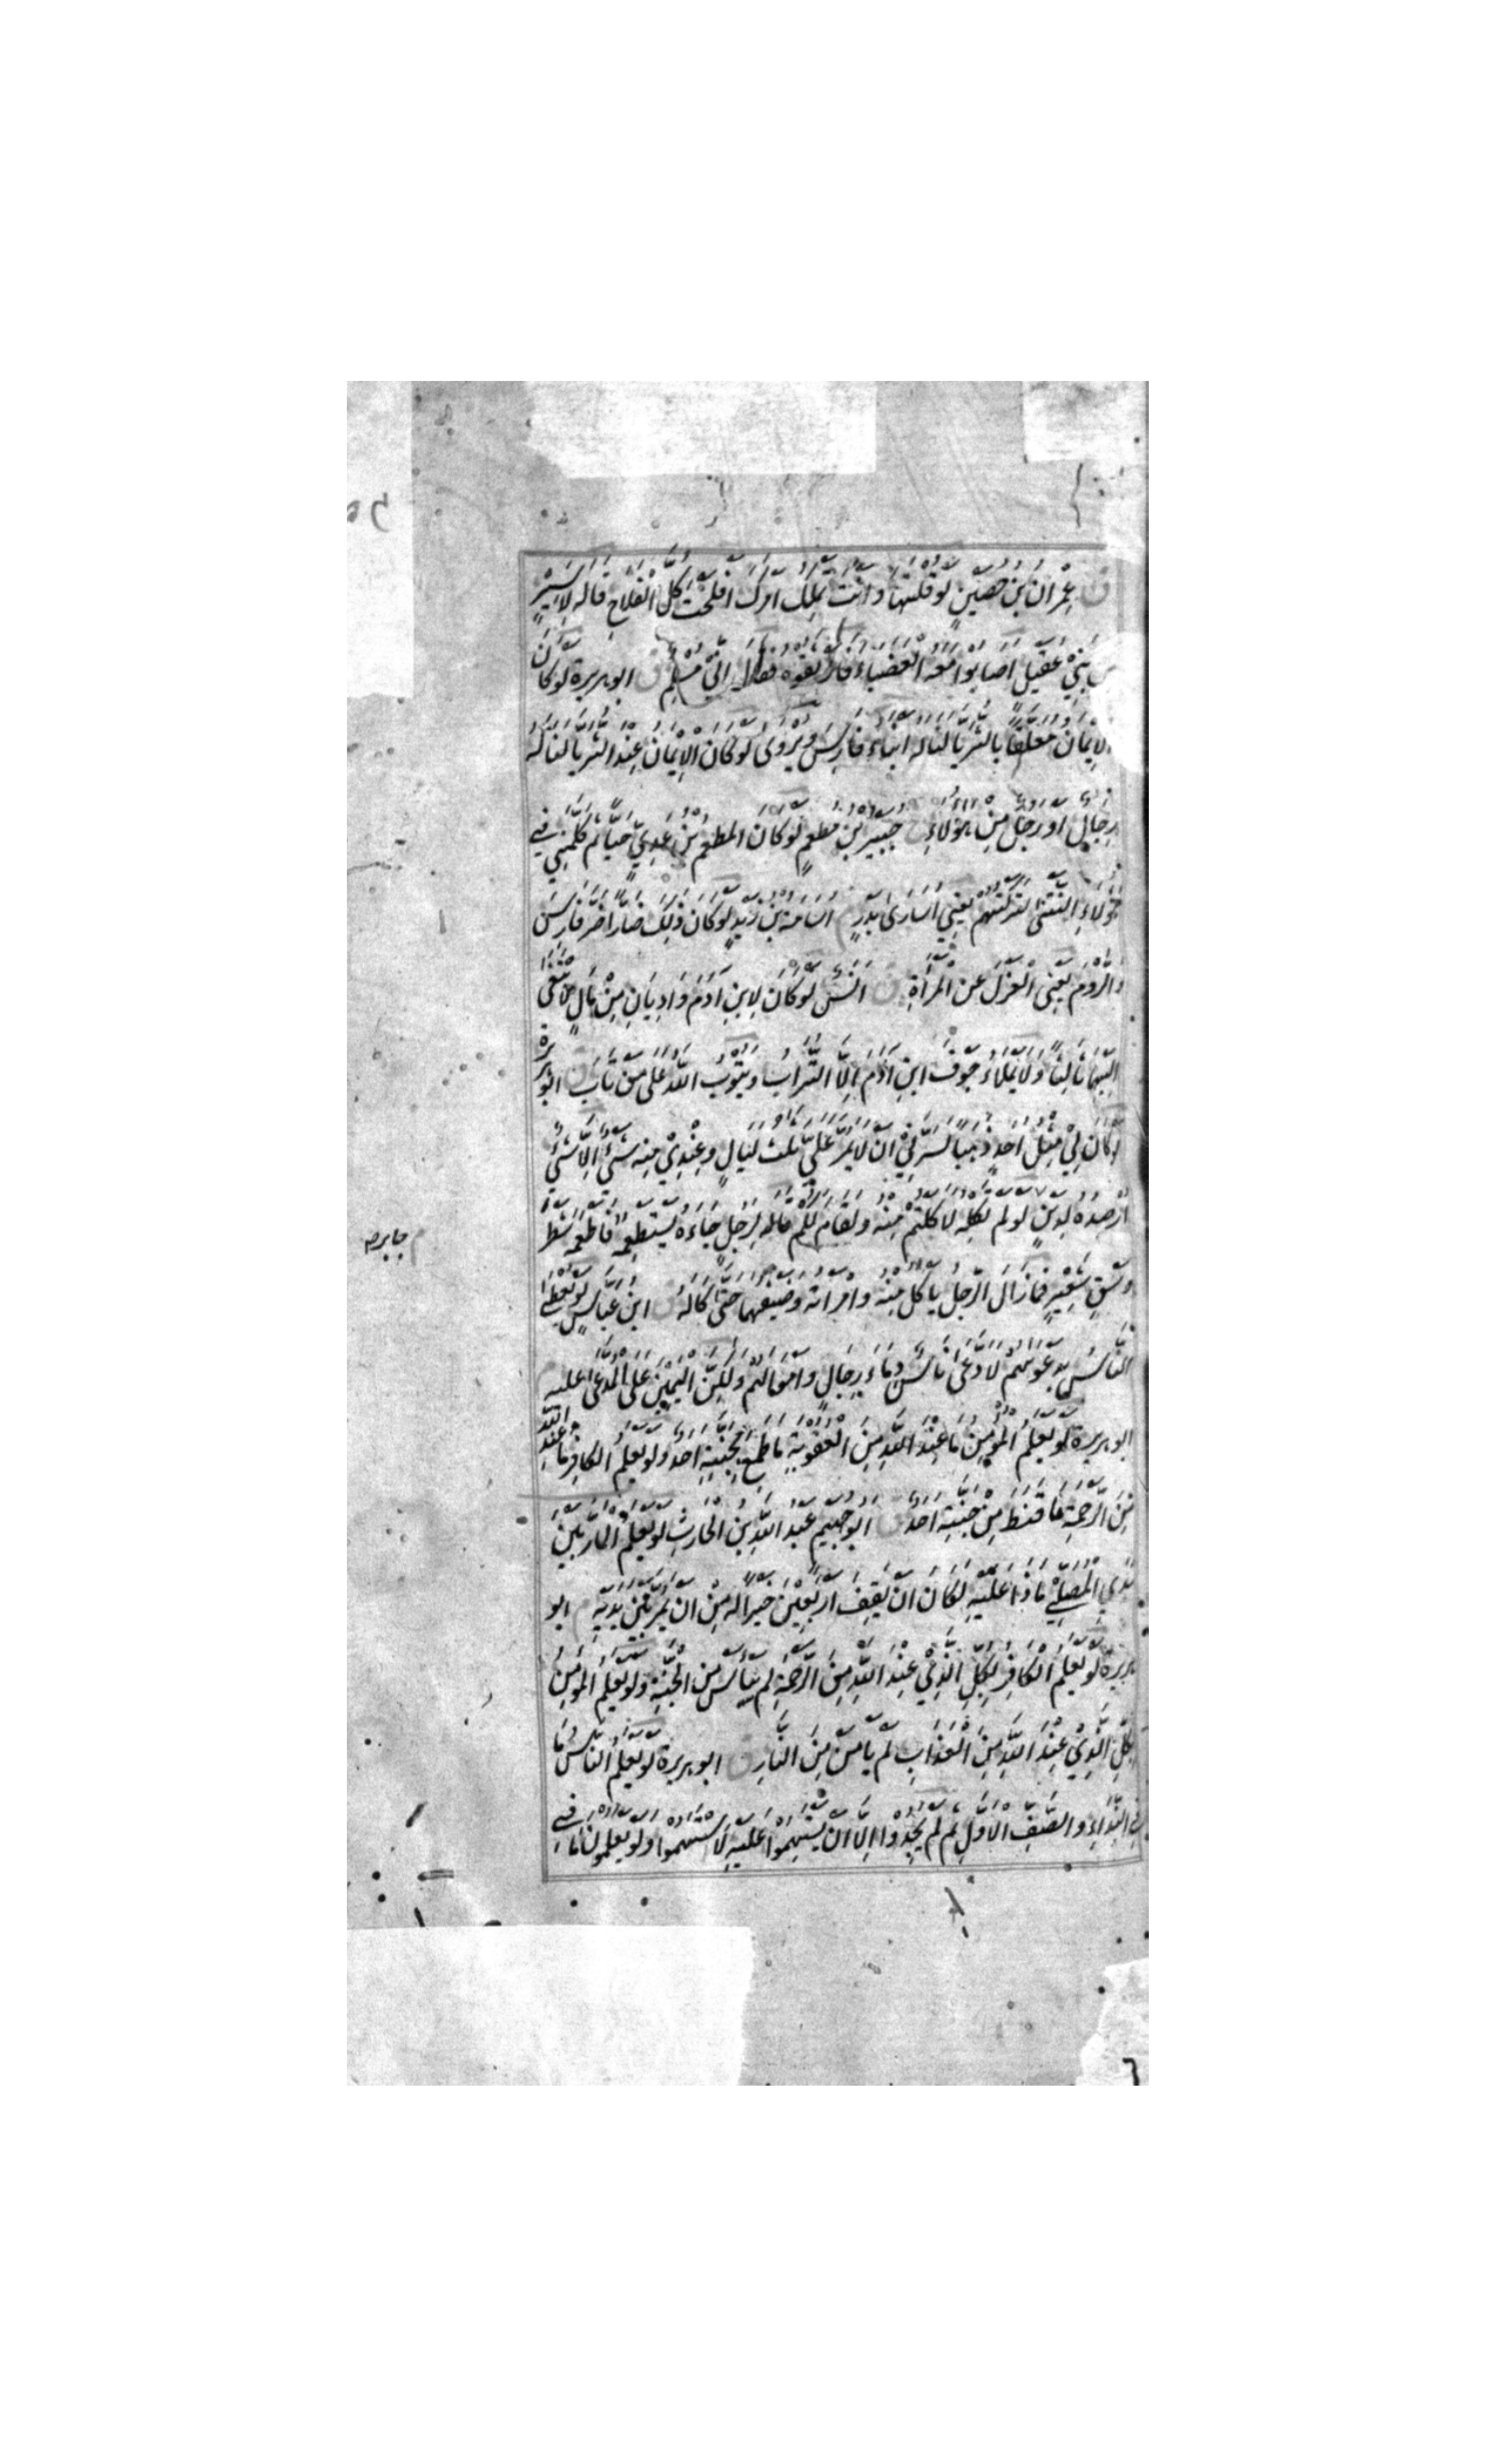 ق عِمْرَانُ بْنُ حُصَيْنٍ لَوْ قُلْتَهَا وَأَنْتَ تَمْلِكُ أَمْرَكَ أَفْلَحْتَ كُلَّ الْفَلَاحِ قَالَهُ لِأَسِيْرٍ
مِنْ بَنِيْ عُقَيْلٍ أَصَابُوْا مَعَهُ الْعَضْبَاءَ فَأَوْثَقُوْهُ فقال إِنِّيْ مُسْلِمٌ ق ابو هريرة لَوْ كَانَ
الْإِيْمَانُ مُعَلَّقًا بِالثُّرَيَّا لَنَالَهُ أَبْنَاءُ فَارِسَ وَيُرْوٰى لَوْ كَانَ الْإِيْمَانُ عِنْدَ الثُّرَيَّا لَنَالَهُ
رِجَالٌ أَوْ رَجُلٌ مِنْ هٰؤُلَاءِ خ جُبَيْرُ بْنُ مُطْعِمٍ لَوْ كَانَ الْمُطْعِمُ بْنُ عَدِيٍّ حَيًّا ثُمَّ كَلَّمَنِيْ فِيْ
هٰؤُلَاءِ النَّتْنٰى لَتَرَكْتُهُمْ يَعْنِيْ أُسَارٰى بَدْرٍ م أُسَامَةُ بْنُ زَيْدٍ لَوْ كَانَ ذٰلِكَ ضَارًّا ضَرَّ فَارِسَ
وَالرُّوْمَ يَعْنِى الْعَزْلَ عَنِ الْمَرْأَةِ ق أَنَسٌ لَوْ كَانَ لِابْنِ آدَمَ وَادِيَانِ مِنْ مَالٍ لَابْتَغٰى
إِلَيْهِمَا ثَالِثًا وَلَا يَمْلَأُ جَوْفَ ابْنِ آدَمَ إِلَّا التُّرَابُ وَيَتُوْبُ اللّٰهُ عَلٰى مَنْ تَابَ ق ابو هريرة
لَوْ كَانَ لِيْ مِثْلُ أُحُدٍ ذَهَبًا لَسَرَّنِيْ أَنْ لَا يَمُرَّ عَلَيَّ ثَلٰثُ لَيَالٍ وَعِنْدِيْ مِنْهُ شَيْءٌ إِلَّا شَيْءٌ
أُرْصِدُهُ لِدَيْنٍ لَوْ لَمْ تَكِلْهُ لَأَكَلْتُمْ مِنْهُ وَلَقَامَ لَكُمْ قاله لِرَجُلٍ جَاءَهُ يَسْتَطْعِمُهُ فَأَطْعَمَهُ شَطْرَ
م جابر رض
وَسْقِ شَعِيْرٍ فَمَا زَالَ الرَّجُلُ يَأْكُلُ مِنْهُ وَامْرَأَتُهُ وَضَيْفُهُمَا حَتّٰى كَالَهُ ق ابْنُ عَبَّاسٍ لَوْ يُعْطَى
النَّاسُ بِدَعْوَاهُمْ لَادَّعٰى نَاسٌ دِمَاءَ رِجَالٍ وَأَمْوَالَهُمْ وَلٰكِنَّ الْيَمِيْنَ عَلَى الْمُدَّعٰى عَلَيْهِ م
ابو هريرة لَوْ يَعْلَمُ الْمُؤْمِنُ مَا عِنْدَ اللّٰهِ مِنَ الْعُقُوْبَةِ مَا طَمِعَ بِجَنَّتِهِ أَحَدٌ وَلَوْ يَعْلَمُ الْكَافِرُ مَا عِنْدَ اللّٰهِ
مِنَ الرَّحْمَةِ مَا قَنِطَ مِنْ جَنَّتِهِ أَحَدٌ ق أَبُوْ جُهَيْمٍ عَبْدُ اللّٰهِ بْنُ الْحَارِثِ لَوْ يَعْلَمُ الْمَارُّ بَيْنَ
يَدَيِ الْمُصَلِّيْ مَاذَا عَلَيْهِ لَكَانَ أَنْ يَقِفَ أَرْبَعِيْنَ خَيْرًا لَهُ مِنْ أَنْ يَمُرَّ بَيْنَ يَدَيْهِ م ابو
هريرة لَوْ يَعْلَمُ الْكَافِرُ بِكُلِّ الَّذِيْ عِنْدَ اللّٰهِ مِنَ الرَّحْمَةِ لَمْ يَيْأَسْ مِنَ الْجَنَّةِ وَلَوْ يَعْلَمُ الْمُؤْمِنُ
بِكُلِّ الَّذِيْ عِنْدَ اللّٰهِ مِنَ الْعَذَابِ لَمْ يَأْمَنْ مِنَ النَّارِ ق ابو هريرة لَوْ يَعْلَمُ النَّاسُ مَا
فِي النِّدَاءِ وَالصَّفِّ الْأَوَّلِ ثُمَّ لَمْ يَجِدُوْا إِلَّا أَنْ يَسْتَهِمُوْا عَلَيْهِ لَاسْتَهَمُوْا وَلَوْ يَعْلَمُوْنَ مَا فِيْ